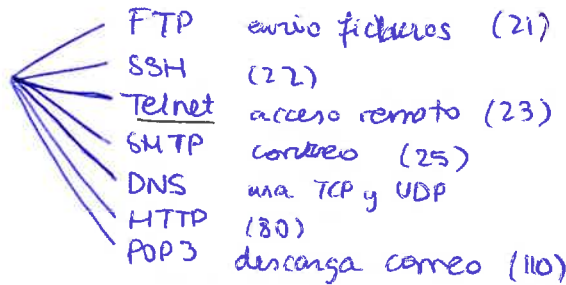 FTP envio ficheros (21)
SSH (22)
Telnet acceso remoto (23)
SMTP correo (25)
DNS usa TCP y UDP
HTTP (80)
POP3 descarga correo (110)